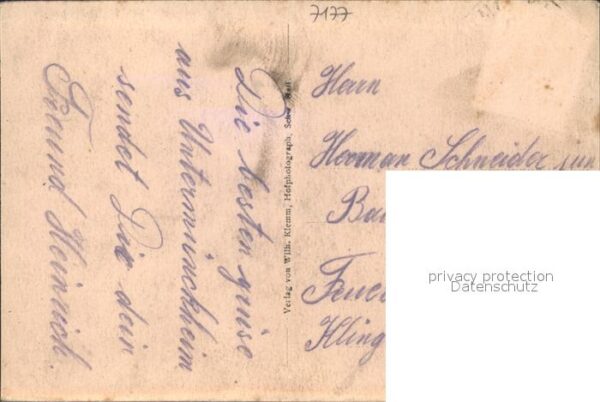 7177
Die besten grüse
aus Untermünckheim
sendet Dir dein
Freund Heinrich.
Verlag von Wilh. Klemm, Hofphotograph,
Herrn
Herman Schneider jun
privacy protection
Datenschutz